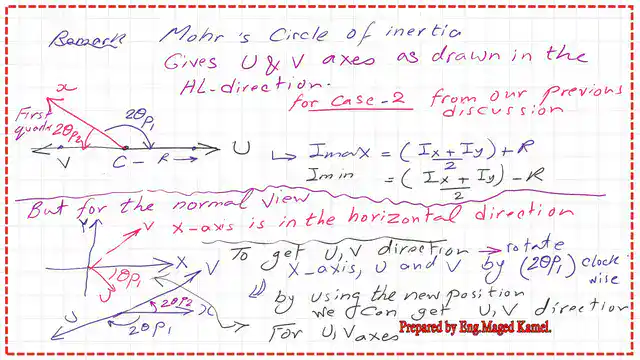 Remark Mohr's Circle of inertia
Gives U & V axes as drawn in the
HL-direction.
for Case-2 from our previous
discussion
x
First
quadr
2θp2
2θp1
V
C - R →
U
Imax = (Ix + Iy)/2 + R
Imin = (Ix + Iy)/2 - R
But for the normal view
X-axis is in the horizontal direction
Y
V
X
U
To get U, V direction → rotate
X-axis, U and V by (2θp1) clock
wise
by using the new position
we can get U, V direction
For U, V axes
V
2θp2
X
U
2θp1
Prepared by Eng.Maged Kamel.